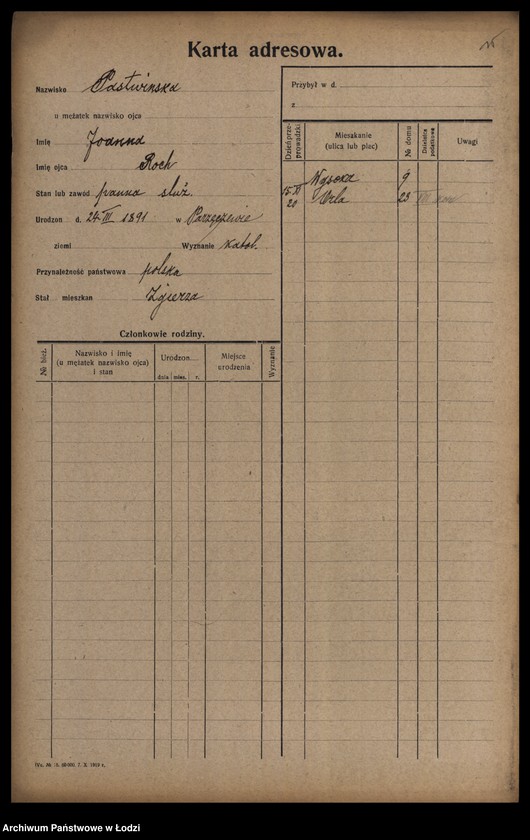 Karta adresowa.
Nazwisko Pastwińska
u mężatek nazwisko ojca
Imię Joanna
Imię ojca Roch
Stan lub zawód panna służ.
Urodzon d. 24 III 1891 w Parzęczewie
ziemi Wyznanie katol.
Przynależność państwowa polska
Stał mieszkan Zgierza
Członkowie rodziny.
№ bież.
Nazwisko i imię (u mężatek nazwisko ojca) i stan
Urodzon
dnia mies. r.
Miejsce urodzenia
Wyznanie
Przybył w d.
z
Dzień przeprowadzki
Mieszkanie (ulica lub plac)
№ domu
Dzielnica podatkowa
Uwagi
Wąska 9
15 XI 20 Wrla 23
7. X. 1919 r.
Archiwum Państwowe w Łodzi